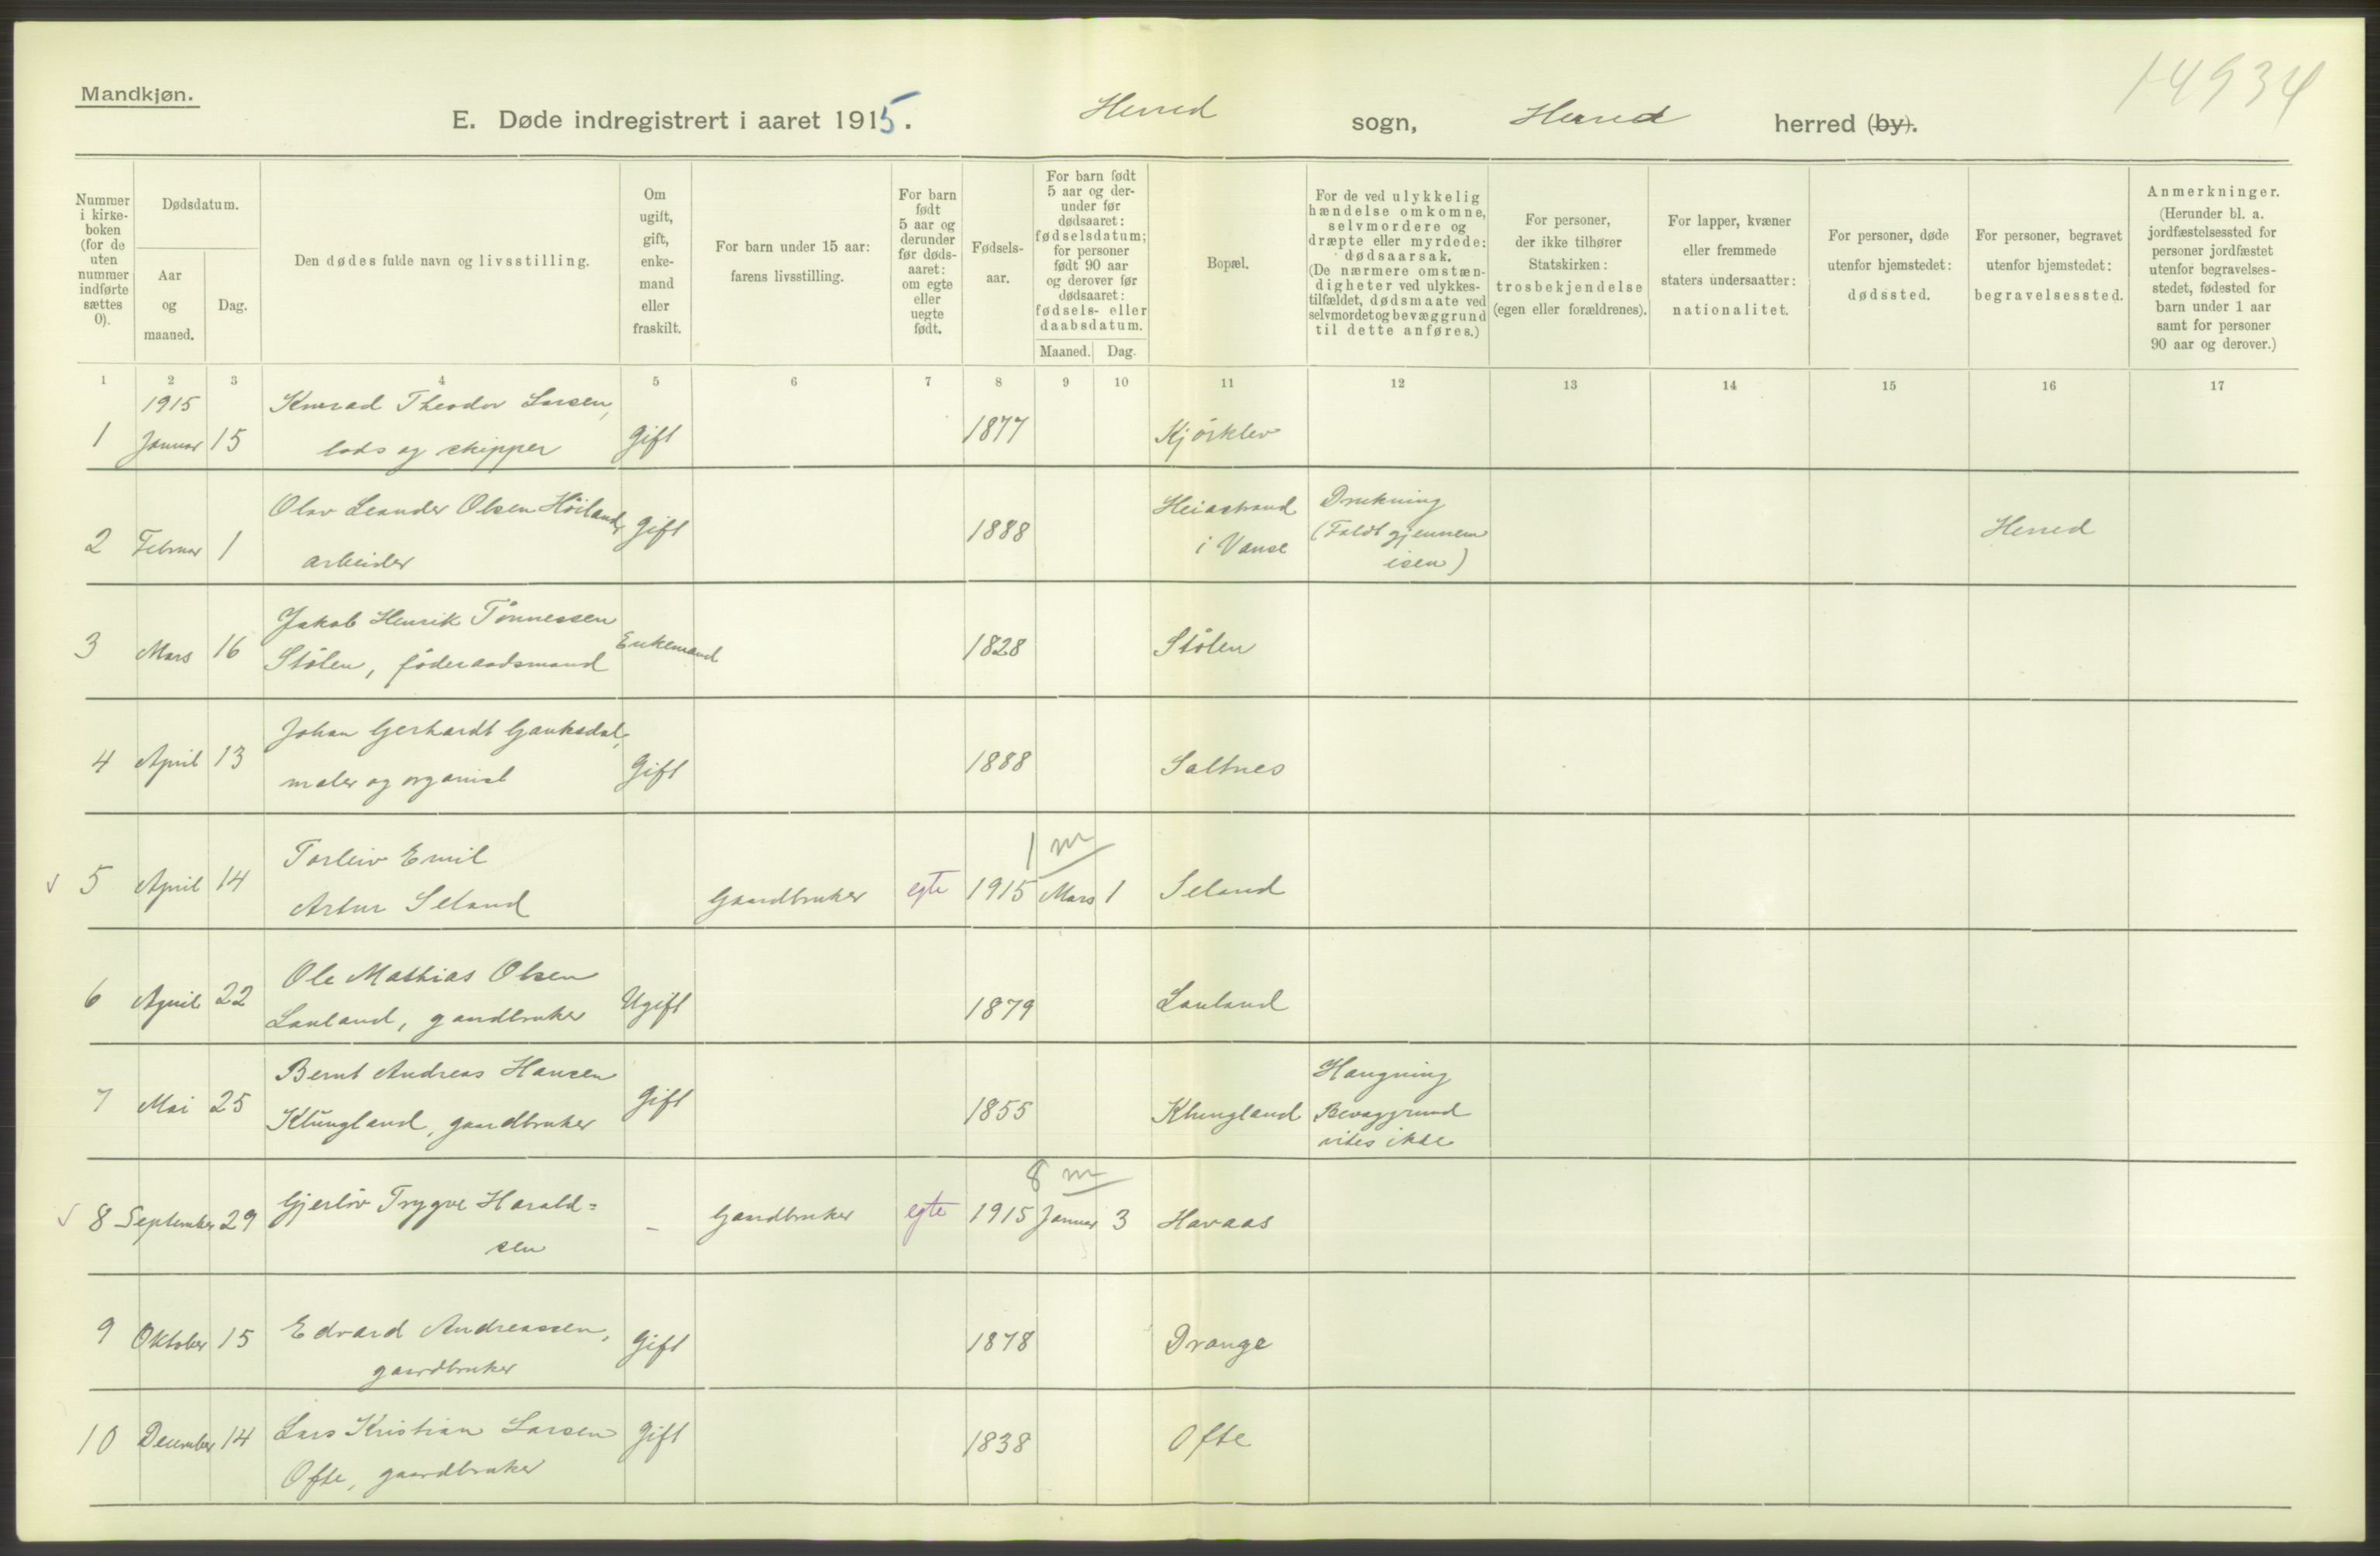 Mandkjøn.
14934
E. Døde indregistrert i aaret 1915. Herred sogn, Herred herred (by).
Nummer i kirke-boken (for de uten nummer indførte sættes 0).
Dødsdatum.
Aar og maaned.
Dag.
Den dødes fulde navn og livsstilling.
Om ugift, gift, enke-mand eller fraskilt.
For barn under 15 aar: farens livsstilling.
For barn født 5 aar og derunder før døds-aaret: om egte eller uegte født.
Fødsels-aar.
For barn født 5 aar og der-under før dødsaaret: fødselsdatum; for personer født 90 aar og derover før dødsaaret: fødsels- eller daabsdatum.
Maaned. Dag.
Bopæl.
For de ved ulykkelig hændelse omkomne, selvmordere og dræpte eller myrdede: dødsaarsak. (De nærmere omstæn-digheter ved ulykkes-tilfældet, dødsmaate ved selvmordet og bevæggrund til dette anføres.)
For personer, der ikke tilhører Statskirken: trosbekjendelse (egen eller forældrenes).
For lapper, kvæner eller fremmede staters undersaatter: nationalitet.
For personer, døde utenfor hjemstedet: dødssted.
For personer, begravet utenfor hjemstedet: begravelsessted.
Anmerkninger. (Herunder bl. a. jordfæstelsessted for personer jordfæstet utenfor begravelses-stedet, fødested for barn under 1 aar samt for personer 90 aar og derover.)
1 2 3 4 5 6 7 8 9 10 11 12 13 14 15 16 17
1915 Konrad Theodor Larsen,
1 Januar 15 lods og skipper Gift 1877 Kjörklev
Olav Leander Olsen Höiland, Heiastrand Drukning
2 Februar 1 arbeider Gift 1888 i Vanse (Faldt gjennem isen) Herred
Jakob Henrik Tönnessen
3 Mars 16 Stölen, föderaadsmand Enkemand 1828 Stölen
Johan Gerhardt Gauksdal,
4 April 13 maler og organist Gift 1888 Saltnes
Torleiv Emil 1 m
5 April 14 Artur Seland Gaardbruker egte 1915 Mars 1 Seland
Ole Mathias Olsen
6 April 22 Lauland, gaardbruker Ugift 1879 Lauland
Bernt Andreas Hansen Hængning
7 Mai 25 Klungland, gaardbruker Gift 1855 Klungland Bevæggrund
vites ikke
8 m
8 September 29 Gjerlöv Trygve Harald= - Gaardbruker egte 1915 Januar 3 Havaas
sen
9 Oktober 15 Edvard Andreassen, Gift 1878 Drange
gaardbruker
10 December 14 Lars Kristian Larsen Gift 1838 Ofte
Ofte, gaardbruker